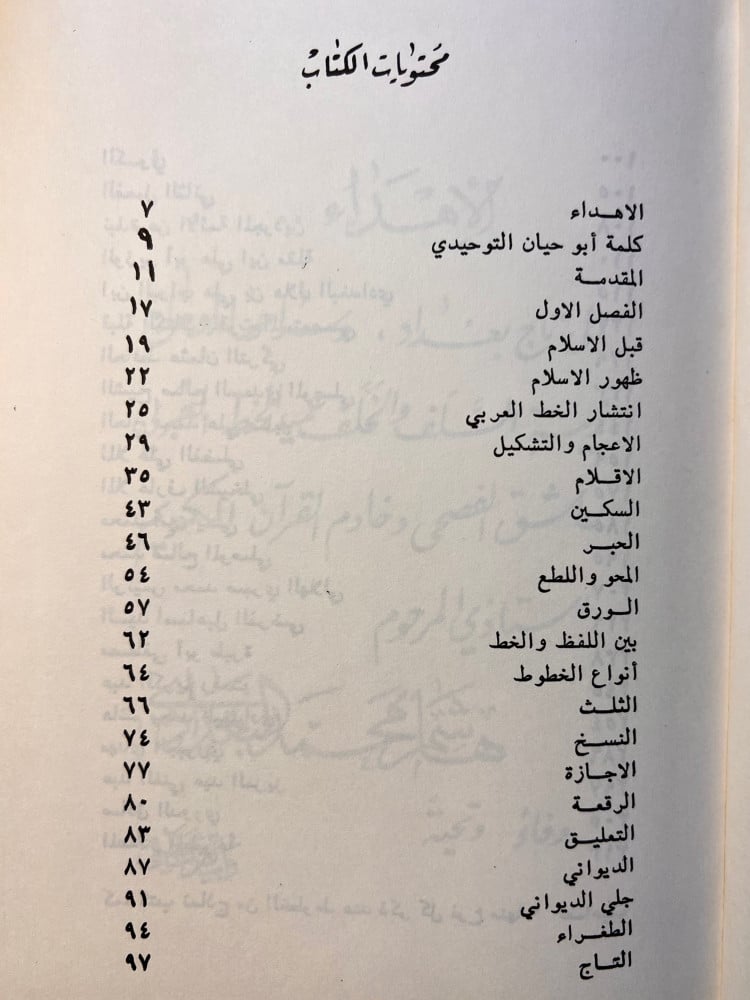 محتويات الكتاب
الاهـداء ٧
كلمة أبو حيان التوحيدي ٩
المقدمـة ١١
الفصل الاول ١٧
قبل الاسلام ١٩
ظهور الاسلام ٢٢
انتشار الخط العربي ٢٥
الاعجام والتشكيل ٢٩
الاقـلام ٣٥
السكـين ٤٣
الحبـر ٤٦
المحو واللطع ٥٤
الـورق ٥٧
بين اللفظ والخط ٦٢
أنواع الخطوط ٦٤
الثلـث ٦٦
النسـخ ٧٤
الاجازة ٧٧
الرقعـة ٨٠
التعليـق ٨٣
الديواني ٨٧
جلي الديواني ٩١
الطغـراء ٩٤
التـاج ٩٧